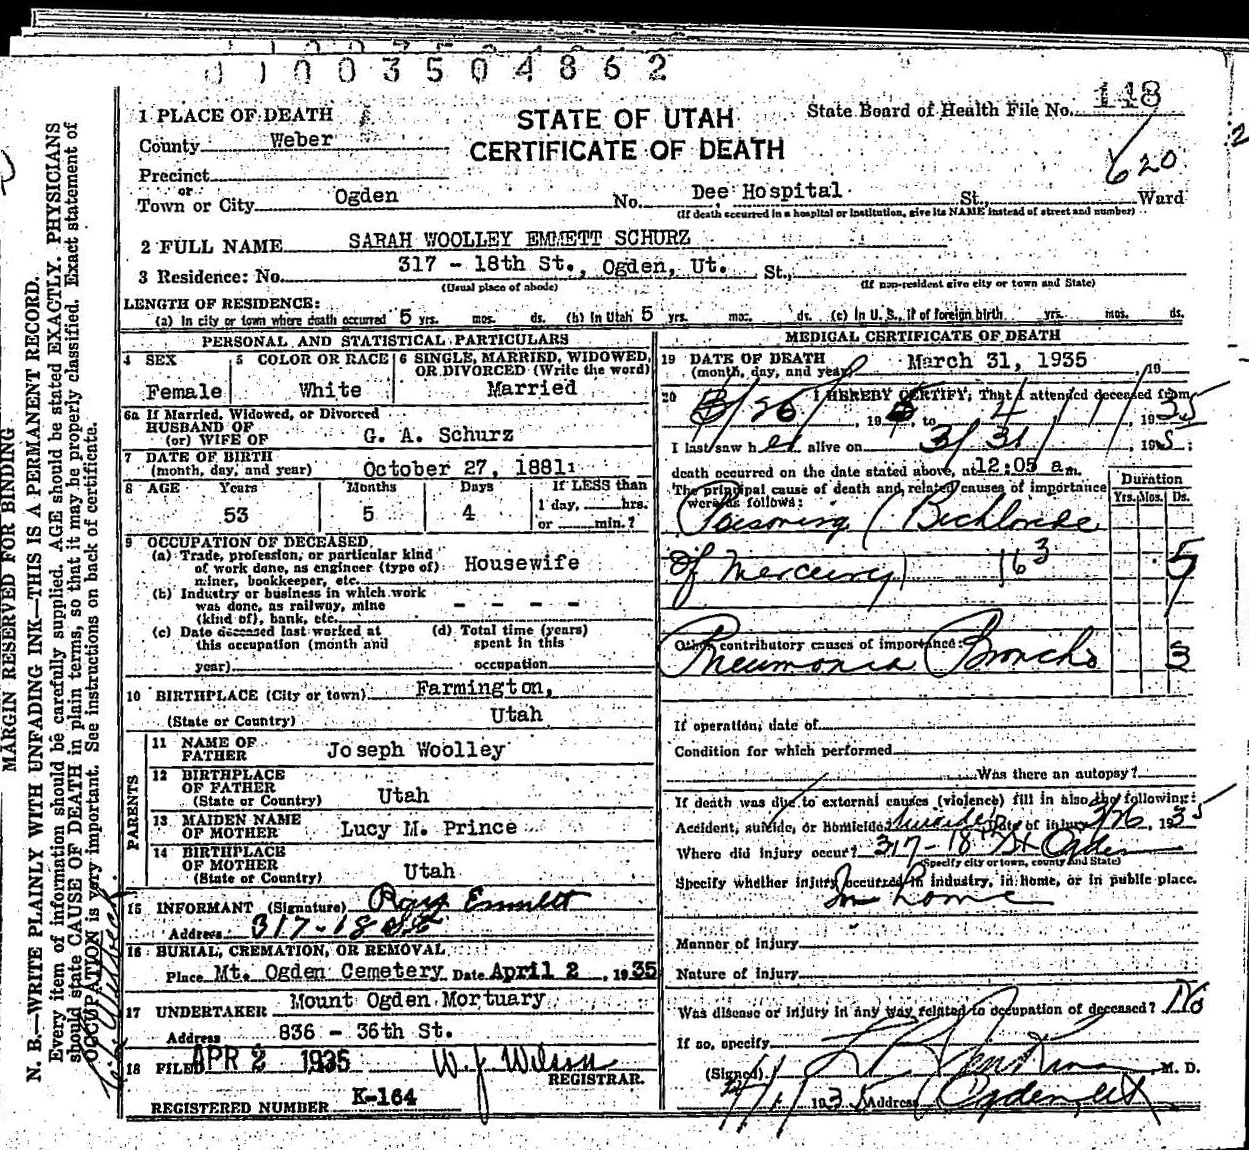 1100350 4862
1 PLACE OF DEATH
County Weber
STATE OF UTAH
CERTIFICATE OF DEATH
State Board of Health File No. 118
620
Precinct
or
Town or City Ogden No. Dee Hospital St., Ward
(If death occurred in a hospital or institution, give its NAME instead of street and number)
2 FULL NAME SARAH WOOLLEY EMMETT SCHURZ
3 Residence: No. 317 - 18th St., Ogden, Ut. St.,
(Usual place of abode) (If non-resident give city or town and State)
LENGTH OF RESIDENCE:
(a) In city or town where death occurred 5 yrs. mos. ds. (b) In Utah 5 yrs. mos. ds. (c) In U. S., if of foreign birth yrs. mos. ds.
PERSONAL AND STATISTICAL PARTICULARS
4 SEX Female
5 COLOR OR RACE White
6 SINGLE, MARRIED, WIDOWED, OR DIVORCED (Write the word) Married
6a If Married, Widowed, or Divorced
HUSBAND OF
(or) WIFE OF G. A. Schurz
7 DATE OF BIRTH
(month, day, and year) October 27, 1881
8 AGE Years Months Days If LESS than
53 5 4 1 day, hrs.
or min.?
9 OCCUPATION OF DECEASED
(a) Trade, profession, or particular kind
of work done, as engineer (type of)
miner, bookkeeper, etc. Housewife
(b) Industry or business in which work
was done, as railway, mine
(kind of), bank, etc. - - - -
(c) Date deceased last worked at
this occupation (month and
year)
(d) Total time (years)
spent in this
occupation
10 BIRTHPLACE (City or town) Farmington,
(State or Country) Utah
PARENTS
11 NAME OF
FATHER Joseph Woolley
12 BIRTHPLACE
OF FATHER
(State or Country) Utah
13 MAIDEN NAME
OF MOTHER Lucy M. Prince
14 BIRTHPLACE
OF MOTHER
(State or Country) Utah
15 INFORMANT (Signature) Ray Emmett
Address 317-18 St
16 BURIAL, CREMATION, OR REMOVAL
Place Mt. Ogden Cemetery Date April 2, 1935
17 UNDERTAKER Mount Ogden Mortuary
Address 836 - 36th St.
18 FILED APR 2 1935 W. J. Wilson
REGISTRAR.
REGISTERED NUMBER K-164
MEDICAL CERTIFICATE OF DEATH
19 DATE OF DEATH
(month, day, and year) March 31, 1935, 19
20 I HEREBY CERTIFY, That I attended deceased from
3/26, 19 , to 4/1, 1935
I last saw her alive on 3/31, 19 5;
death occurred on the date stated above, at 12:05 am.
The principal cause of death and related causes of importance
were as follows:
Duration
Yrs. Mos. Ds.
Poisoning (Bichloride
of Mercury) 163 5
Other contributory causes of importance:
Pneumonia (Broncho 3
If operation, date of
Condition for which performed
Was there an autopsy?
If death was due to external causes (violence) fill in also the following:
Accident, suicide, or homicide? Suicide Date of injury 3/26, 1935
Where did injury occur? 317-18 St Ogden
(Specify city or town, county and State)
Specify whether injury occurred in industry, in home, or in public place.
In home
Manner of injury
Nature of injury
Was disease or injury in any way related to occupation of deceased? No
If so, specify
(Signed) M. D.
4/1, 1935 Address Ogden, Ut
MARGIN RESERVED FOR BINDING
N. B.—WRITE PLAINLY WITH UNFADING INK—THIS IS A PERMANENT RECORD.
Every item of information should be carefully supplied. AGE should be stated EXACTLY. PHYSICIANS
should state CAUSE OF DEATH in plain terms, so that it may be properly classified. Exact statement of
OCCUPATION is very important. See instructions on back of certificate.